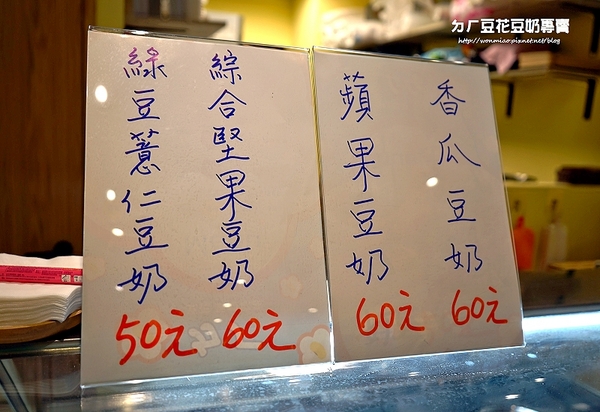 ㄉㄏ豆花豆奶專賣
http://wonmiao.pixnet.net/blog
香瓜豆奶
60元
蘋果豆奶
60元
綜合堅果豆奶
60元
綠豆薏仁豆奶
50元